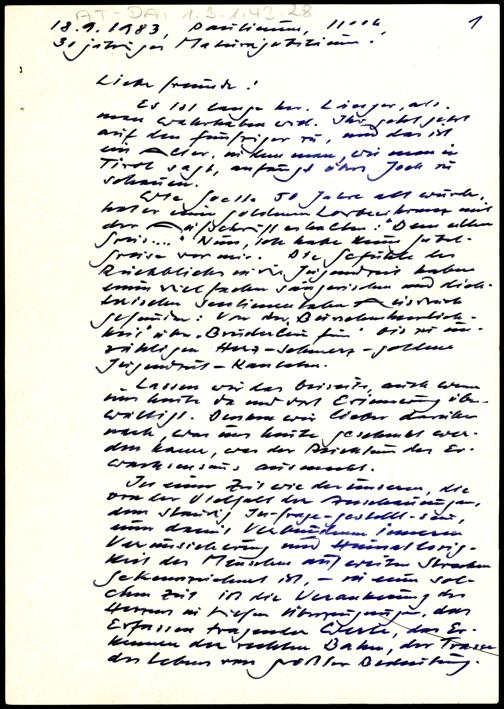 AT-DA: 1.3.1.43.28
18.9.1983, Paulinum, 11 00 h, 1
30 jähriges Maturajubiläum.
Liebe Freunde!
Es ist lange her. Länger, als
man wahrhaben will. Ihr geht jetzt
auf den Fünfziger zu, und das ist
ein Alter, in dem man, wie man in
Tirol sagt, anfangs übers Joch zu
schauen.
Wie Goethe 50 Jahre alt wurde,
hat er einen goldenen Lorbeerkranz mit
der Aufschrift erhalten: "Dem alten
Greis..." Nun, ich habe keine Jubel-
greise vor mir. Die Gefühle des
Rückblickes in die Jugendzeit haben
einen vielfachen sängerischen und dich-
terischen sentimentalen Ausdruck
gefunden: Von der "Burschenherrlich-
keit" über "Brüderlein fein" bis zu un-
zähligen Herz-Schmerz-goldene
Jugendzeit-Kanzonen.
Lassen wir das beiseite, auch wenn
uns heute da und dort Erinnerung über-
wältigt. Denken wir lieber darüber
nach, was uns heute geschenkt wer-
den kann, was der Reichtum des Er-
wachsenseins ausmacht.
In einer Zeit wie der unseren, die
von der Vielfalt der Anschauungen,
dem ständig In-frage-gestellt-sein,
einer damit verbundenen inneren
Verunsicherung und Heimatlosig-
keit des Menschen auf weiten Strecken
gekennzeichnet ist, – in einer sol-
chen Zeit ist die Verankerung des
Herzens in tiefen Überzeugungen, das
Erfassen tragender Werte, das Er-
kennen der rechten Bahn, der Trasse
des Lebens von größter Bedeutung.